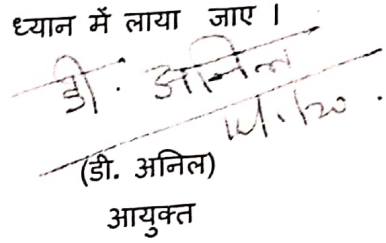 ध्यान में लाया जाए ।
डी. अनिल
(डी. अनिल)
आयुक्त